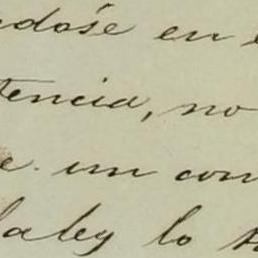 ndose en e
tencia, no
e un con
laley lo